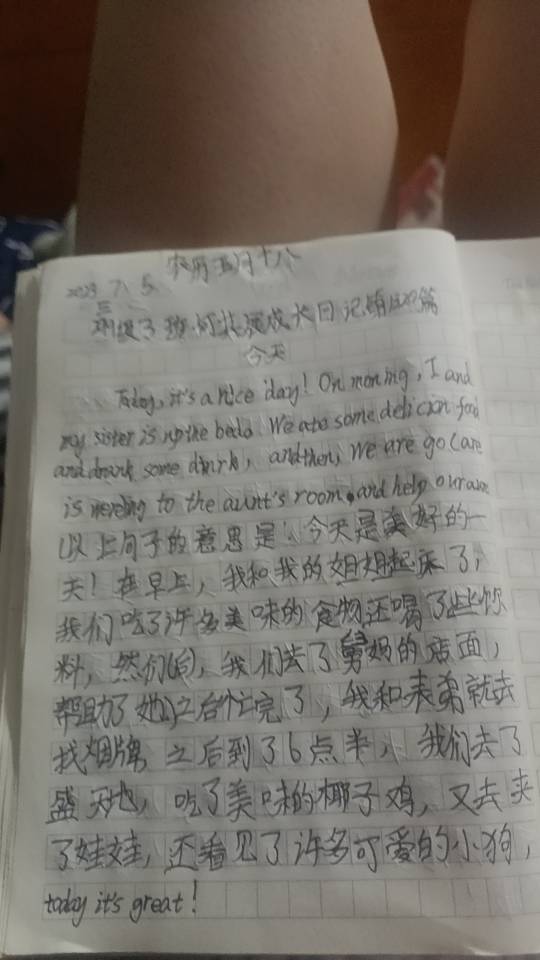 农历五月十八
2023 7. 5.
三年级3班 成长日记 篇
今天
Today, it's a nice day! On moning, I and
my sister is up the beds. We ate some delicion food
and drank some dinrk, and then, we are go (are
is mereding to the aunt's room, and help our aune
以上句子的意思是:今天是美好的一
天!在早上,我和我的姐姐起床了,
我们吃了许多美味的食物还喝了些饮
料,然们(后),我们去了舅妈的店面,
帮助了她,之后忙完了,我和表弟就去
找烟牌,之后到了6点半,我们去了
盛天地,吃了美味的椰子鸡,又去夹
了娃娃,还看见了许多可爱的小狗,
today it's great!